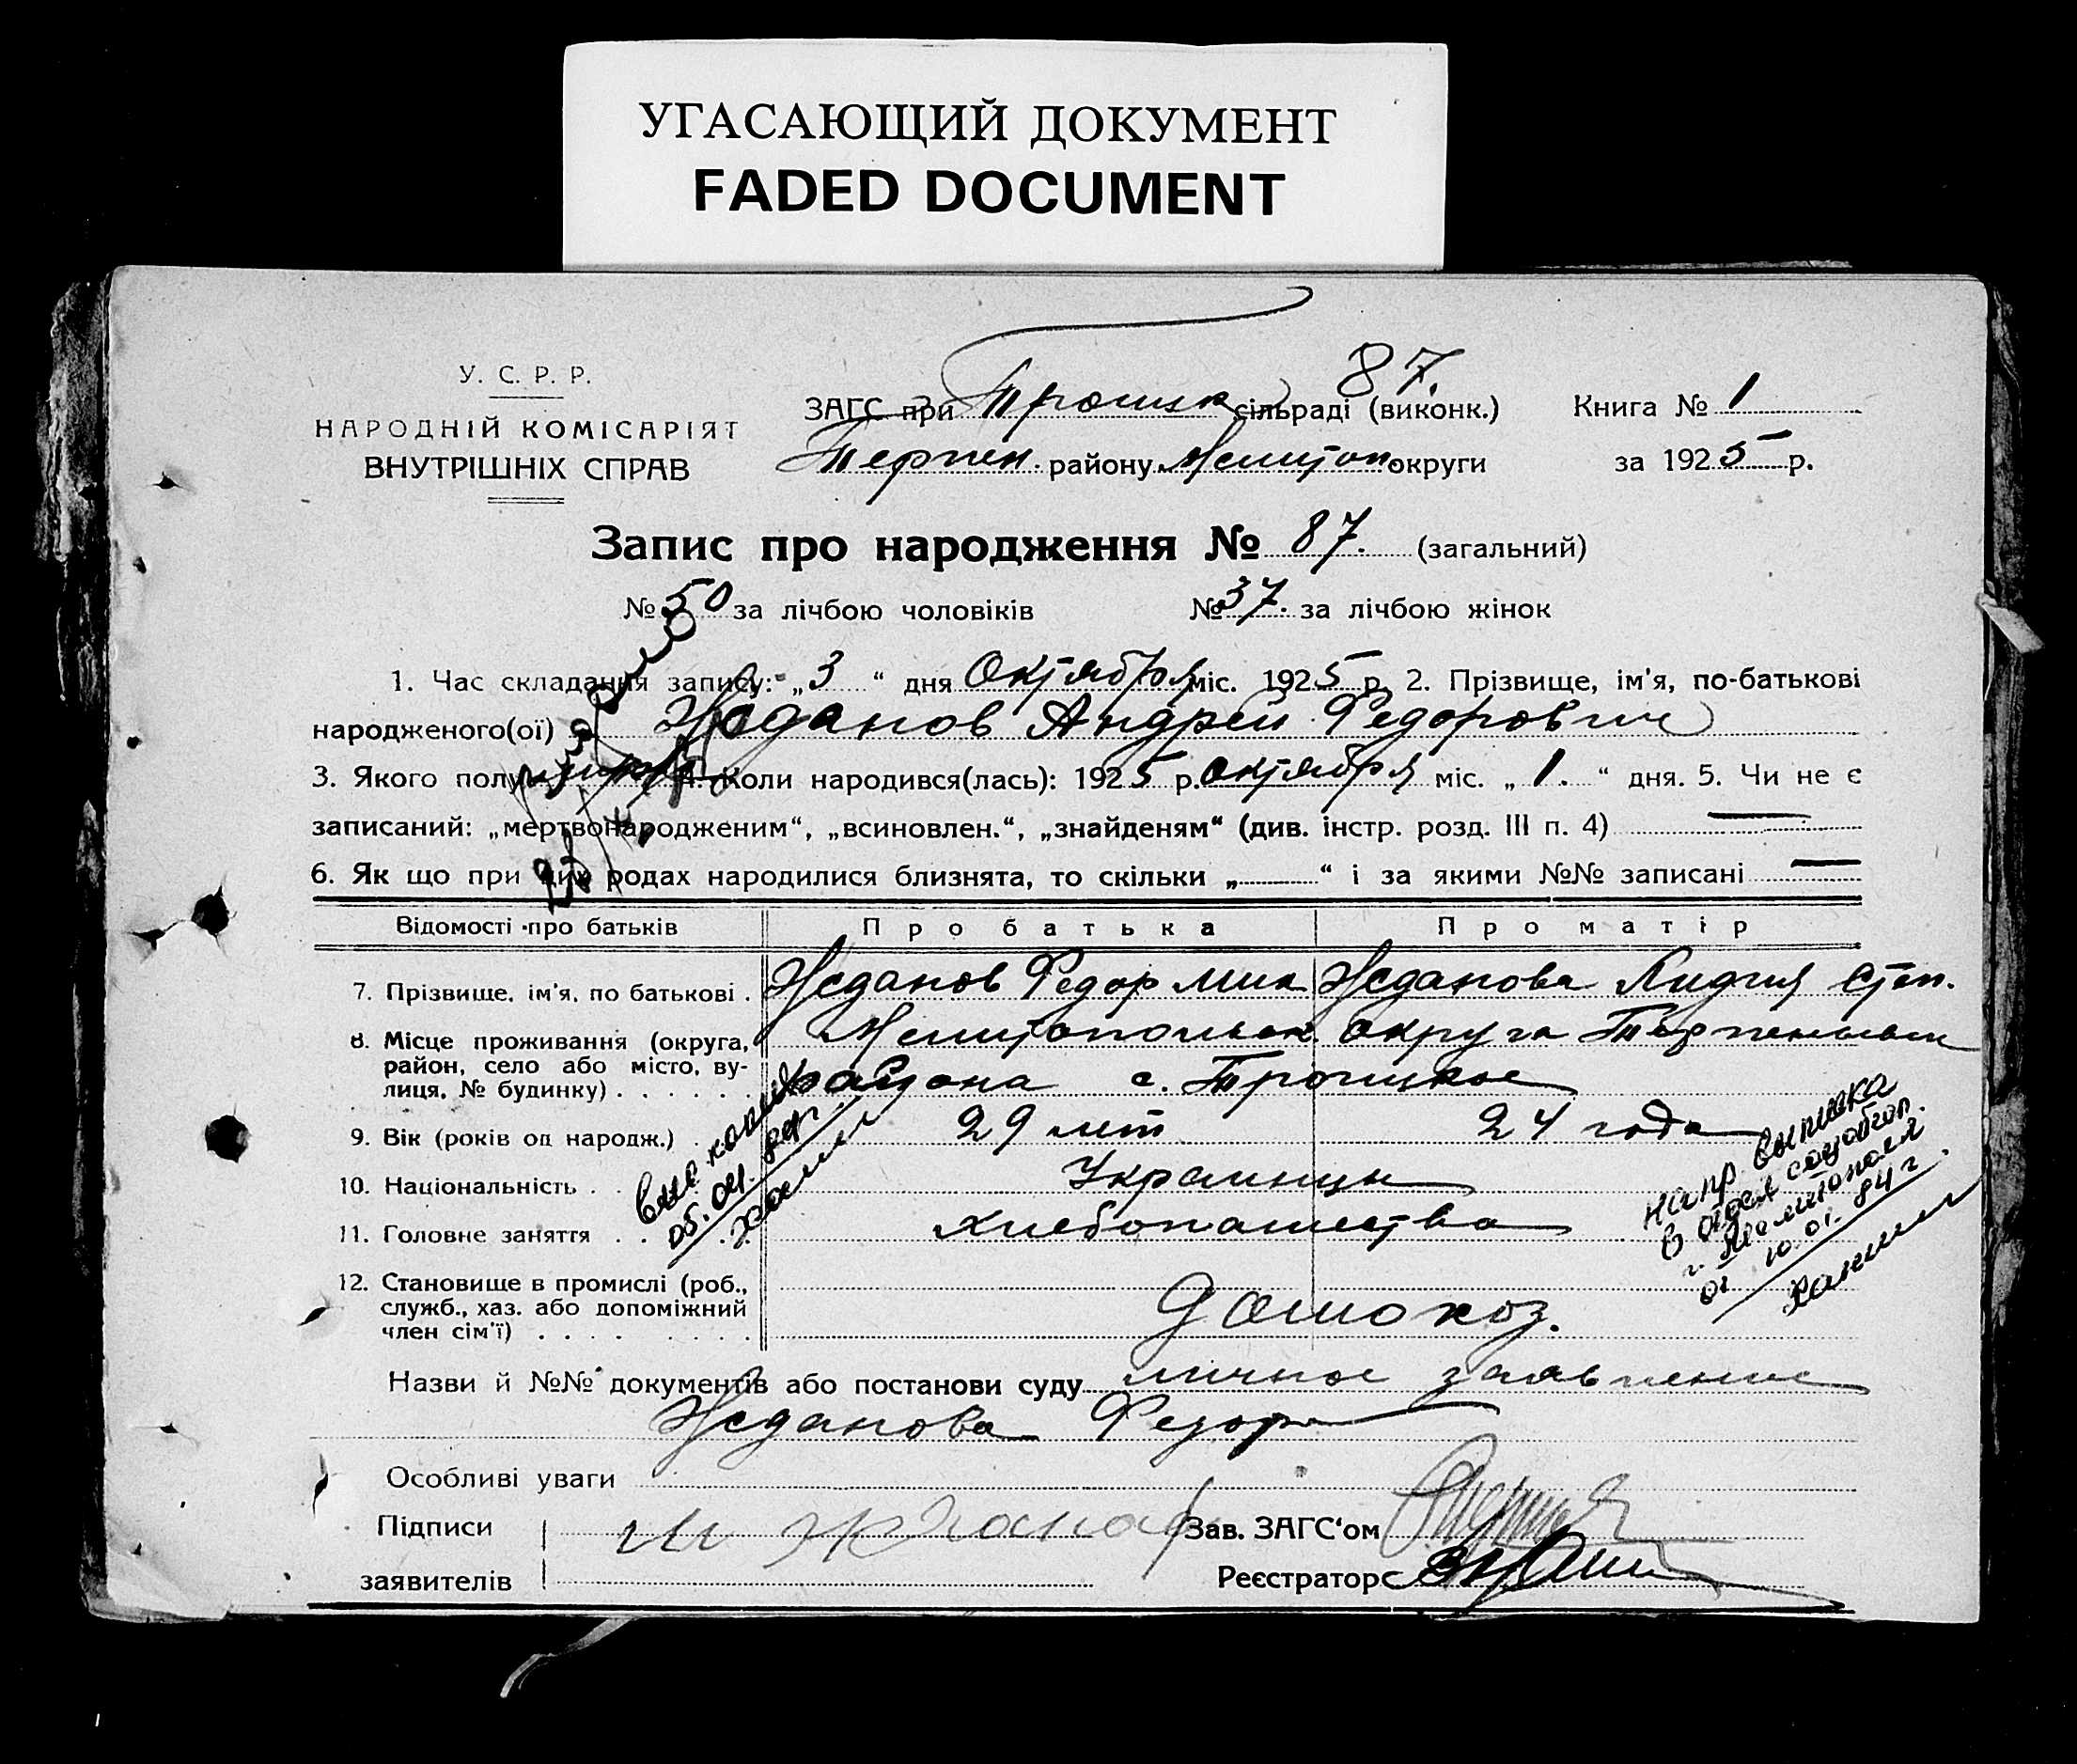 УГАСАЮЩИЙ ДОКУМЕНТ
FADED DOCUMENT
87.
У. С. Р. Р.
НАРОДНІЙ КОМІСАРІЯТ
ВНУТРІШНІХ СПРАВ
ЗАГС при Троицк сільраді (виконк.)
Книга № 1
Терпен. району Мелитоп. округи
за 1925 р.
Запис про народження № 87. (загальний)
№ 50 за лічбою чоловіків № 37. за лічбою жінок
1. Час складання запису: „3“ дня Октября міс. 1925 р. 2. Прізвище, ім'я, по-батькові
народженого(ої) Жданов Андрей Федорович
3. Якого полу 4. Коли народився(лась): 1925 р. октября міс. „1.“ дня. 5. Чи не є
записаний: „мертвонародженим“, „всиновлен.“, „знайденям“ (див. інстр. розд. III п. 4) —
6. Як що при цих родах народилися близнята, то скільки „ “ і за якими №№ записані —
Відомості про батьків Про батька Про матір
7. Прізвище, ім'я, по батькові . Жданов Федор Мих Жданова Лидия Степ.
8. Місце проживання (округа, район, село або місто, вулиця, № будинку) . . . . . . Мелитопольск. округа Терпеньевск
района с. Троицкое
9. Вік (років од народж.) . 29 лет 24 года
10. Національність . . Украинцы
11. Головне заняття . . хлебопашество
12. Становище в промислі (роб.,
служб., хаз. або допоміжний
член сім'ї) . . . . . . . . домохоз.
напр выписка
г. Мелитополя
от 10.01.84 г.
Назви й №№ документів або постанови суду личное заявление
Жданова Федора
Особливі уваги
Підписи
заявителів
Зав. ЗАГС‘ом
Реєстратор